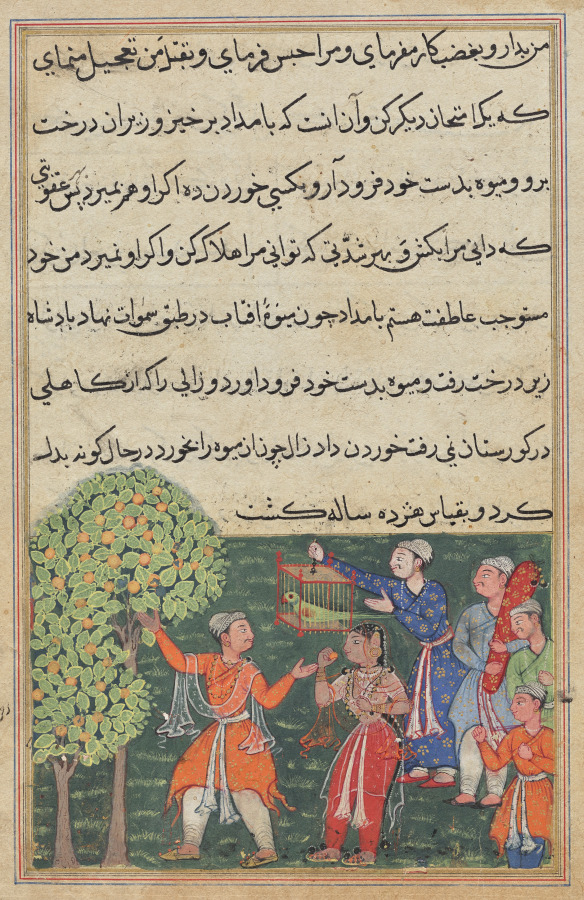 من بدار و بغضب کار مفرمای و مرا حبس فرمای و تقتل من تعجیل منمای
که یک امتحان دیکر کن و آن انست که بامداد برخیز و زیر ان درخت
برو و میوه بدست خود فرود آر و بکسی خوردن ده اکر او هم نمیرد پس عقوبتی
که دانی مرا بکش و بهر شدتی که توانی مرا هلاک کن و اکر او نمیرد من خود
مستوجب عاطفت هستم بامداد چون میوۀ افتاب در طبق سموات نهاد بادشاه
زیر درخت رفت و میوه بدست خود فرود اورد و زالی را که از کاهلی
در کورستان نی رفت خوردن داد زال چون ان میوه را بخورد در حال کونه بدل
کرد و بقیاس هژده ساله کشت